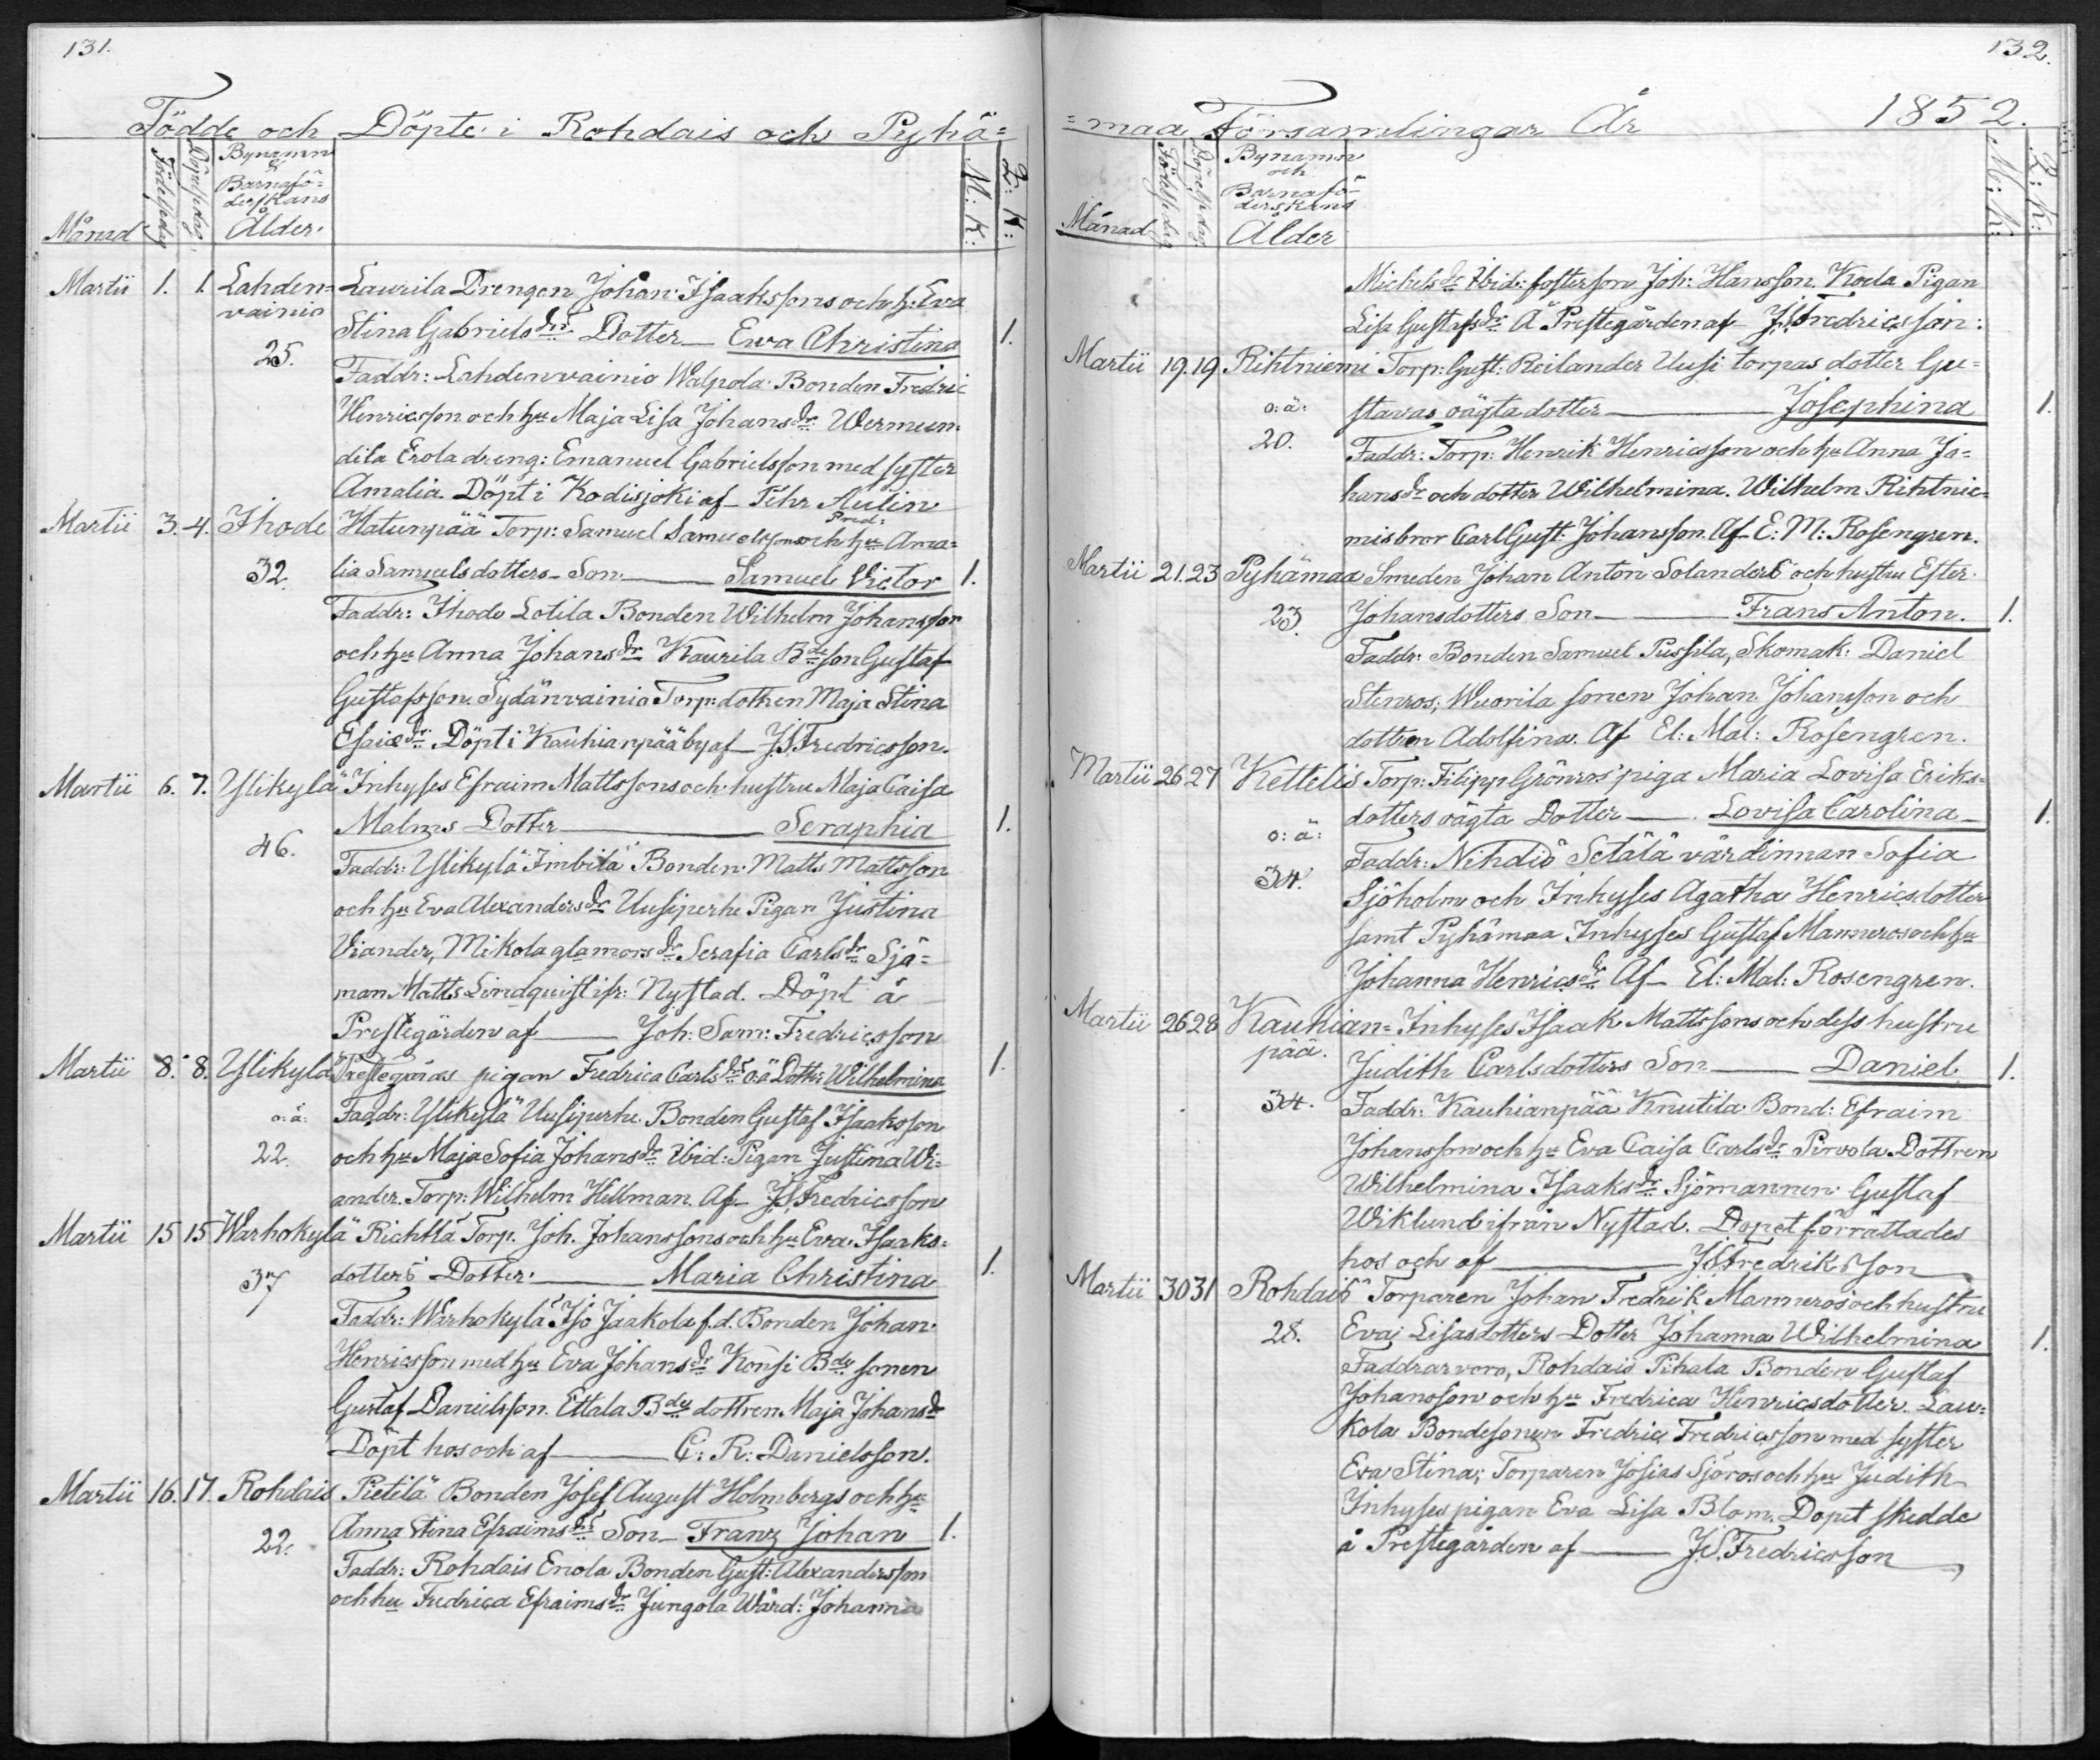 131.
Födde och Döpte i Rohdais och Pyhä=
Månad
Födelsedag
Döpelsedag
Bynamn
&
Barnafö=
derskans
Ålder.
M: K:
Q: K:
Martii 1. 1. Lahden= Laurila Drengen Johan Isaakssons och h: Eva
vainio
Stina Gabrielsdrs Dotter — Ewa Christina 1.
25.
Faddr: Lahdenvainio Walpola Bonden Fredric
Henricsson och hu Maja Lisa Johansdr Wermun=
dila Erola dreng: Emanuel Gabrielsson med syster
Amalia. Döpt i Kodisjoki af Pehr Aulin
Pred:
Martii 3. 4. Ihode Hatunpää Torp: Samuel Samuelssons och hu Ama=
32. lia Samuelsdotters Son — Samuel Victor 1.
Faddr: Ihode Lotila Bonden Wilhelm Johansson
och hu Anna Johansdr Kaurila Bde son Gustaf
Gustafsson. Sydänvainio Torp: dottren Maja Stina
Esaiædr Döpt i Kauhianpää by af J.S. Fredricsson.
Martii 6. 7. Ylikylä Inhyses Efraim Mattssons och hustru Maja Caisa
Malms Dotter — Seraphia 1.
46.
Faddr: Ylikylä Imbilä Bonden Matts Mattsson
och hu Eva Alexandersdr Uusiperhe Pigan Justina
Viander, Mikola glamorsdr Serafia Carlsdr Sjö=
man Matts Lindquist ifr: Nystad. Döpt å
Prestegården af — Joh: Sam: Fredricsson
Martii 8. 8. Ylikylä Prestegårds pigan Fredrica Carlsdrs o:ä Dotter Wilhelmina 1.
o: ä: Faddr: Ylikylä Uusiperhe Bonden Gustaf Isaaksson
22. och hu Maja Sofia Johansdr Ibid: Pigan Justina Wi=
ander. Torp: Wilhelm Hellman. Af J.S. Fredricsson
Martii 15 15 Warhokylä Richtlä Torp. Joh. Johanssons och hu Eva Isaaks=
37 dotters Dotter. — Maria Christina 1.
Faddr: Warhokylä Iso Jaakola f.d. Bonden Johan
Henricsson med hu Eva Johansdr Könsi Bde sonen
Gustaf Danielsson. Ettala Bde dottren Maja Johansdr
Döpt hos och af — C: R: Danielsson.
Martii 16. 17. Rohdais Pietilä Bonden Josef August Holmbergs och hu
22. Anna Stina Efraimsdrs Son — Franz Johan 1.
Faddr: Rohdais Erola Bonden Gust: Alexandersson
och hu Fredrica Efraimsdr Jungola Wärd: Johanna
132.
=maa Församlingar År 1852.
Månad
Födelsedag
Döpelsedag
Bynamn
och
Barnafö=
derskans
Ålder
M: K:
Q: K:
Michelsdr Ibid: fosterson Joh: Hansson. Koda Pigan
Lisa Gustafsdr Å Prestegården af J.S. Fredricsson:
Martii 19. 19 Rihtniemi Torp: Gust: Reilander Uusi torpas dotter Gu=
o: ä: stavas oägta dotter — Josephina 1.
20. Faddr: Torp: Henrik Henricsson och hu Anna Jo=
hansdr och dotter Wilhelmina. Wilhelm Rihtnie=
mis bror Carl Gust: Johansson. Af E: M: Rosengren.
Martii 21. 23 Pyhämaa Smeden Johan Anton Solanders och hustru Ester
23. Johansdotters Son — Frans Anton. 1.
Faddr: Bonden Samuel Pussila, Skomak: Daniel
Stenros; Wuorila sonen Johan Johansson och
dottren Adolfina. Af El: Mal: Rosengren.
Martii 26 27 Kettelis Torp: Filipp Grönros' piga Maria Lovisa Eriks=
dotters oägta Dotter — Lovisa Carolina 1.
o: ä:
Faddr: Nihdiö Setälä värdinnan Sofia
34.
Sjöholm och Inhyses Agatha Henricsdotter
samt Pyhämaa Inhyses Gustaf Manneros och hu
Johanna Henricsdr Af El: Mal: Rosengren.
Martii 26 28 Kauhian= Inhyses Isaak Mattssons och dess hustru
pää. Judith Carlsdotters Son — Daniel 1.
34. Faddr: Kauhianpää Knutila Bond: Efraim
Johansson och hu Eva Caisa Carlsdr Pirvola Dottren
Wilhelmina Isaaksdr Sjömannen Gustaf
Wiklund ifrån Nystad. Dopet förrättades
hos och af — J.S. Fredriksson
Martii 30 31 Rohdais Torparen Johan Fredrik Manneros' och hustru
28. Eva Lisasdotters Dotter Johanna Wilhelmina 1.
Faddrar voro, Rohdais Pihala Bonden Gustaf
Johansson och hu Fredrica Henricsdotter. Lau=
kola Bondesonen Fredric Fredricsson med syster
Eva Stina; Torparen Josias Sjöros och hu Judith
Inhyses pigan Eva Lisa Blom. Dopet skedde
å Prestegården af — J.S. Fredricsson